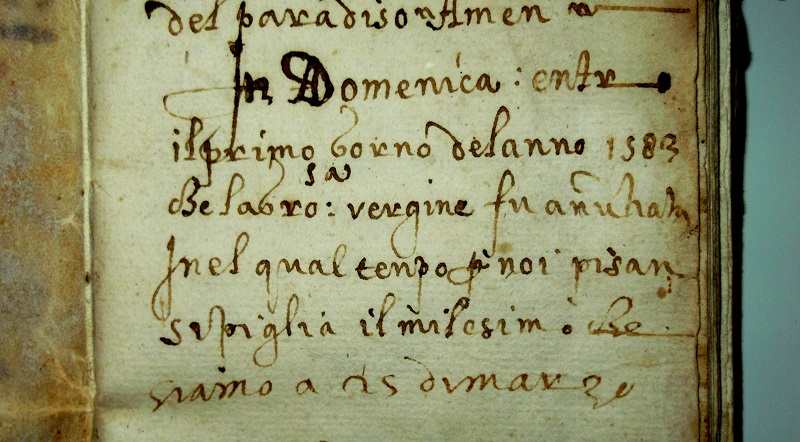 del paradiso Amen
In Domenica: entr
il primo gorno del anno 1583
che la gro:sa vergine fu anuntiata
Inel qual tenpo noi pisan
si piglia il milesimo che
siamo a di 25 di marzo